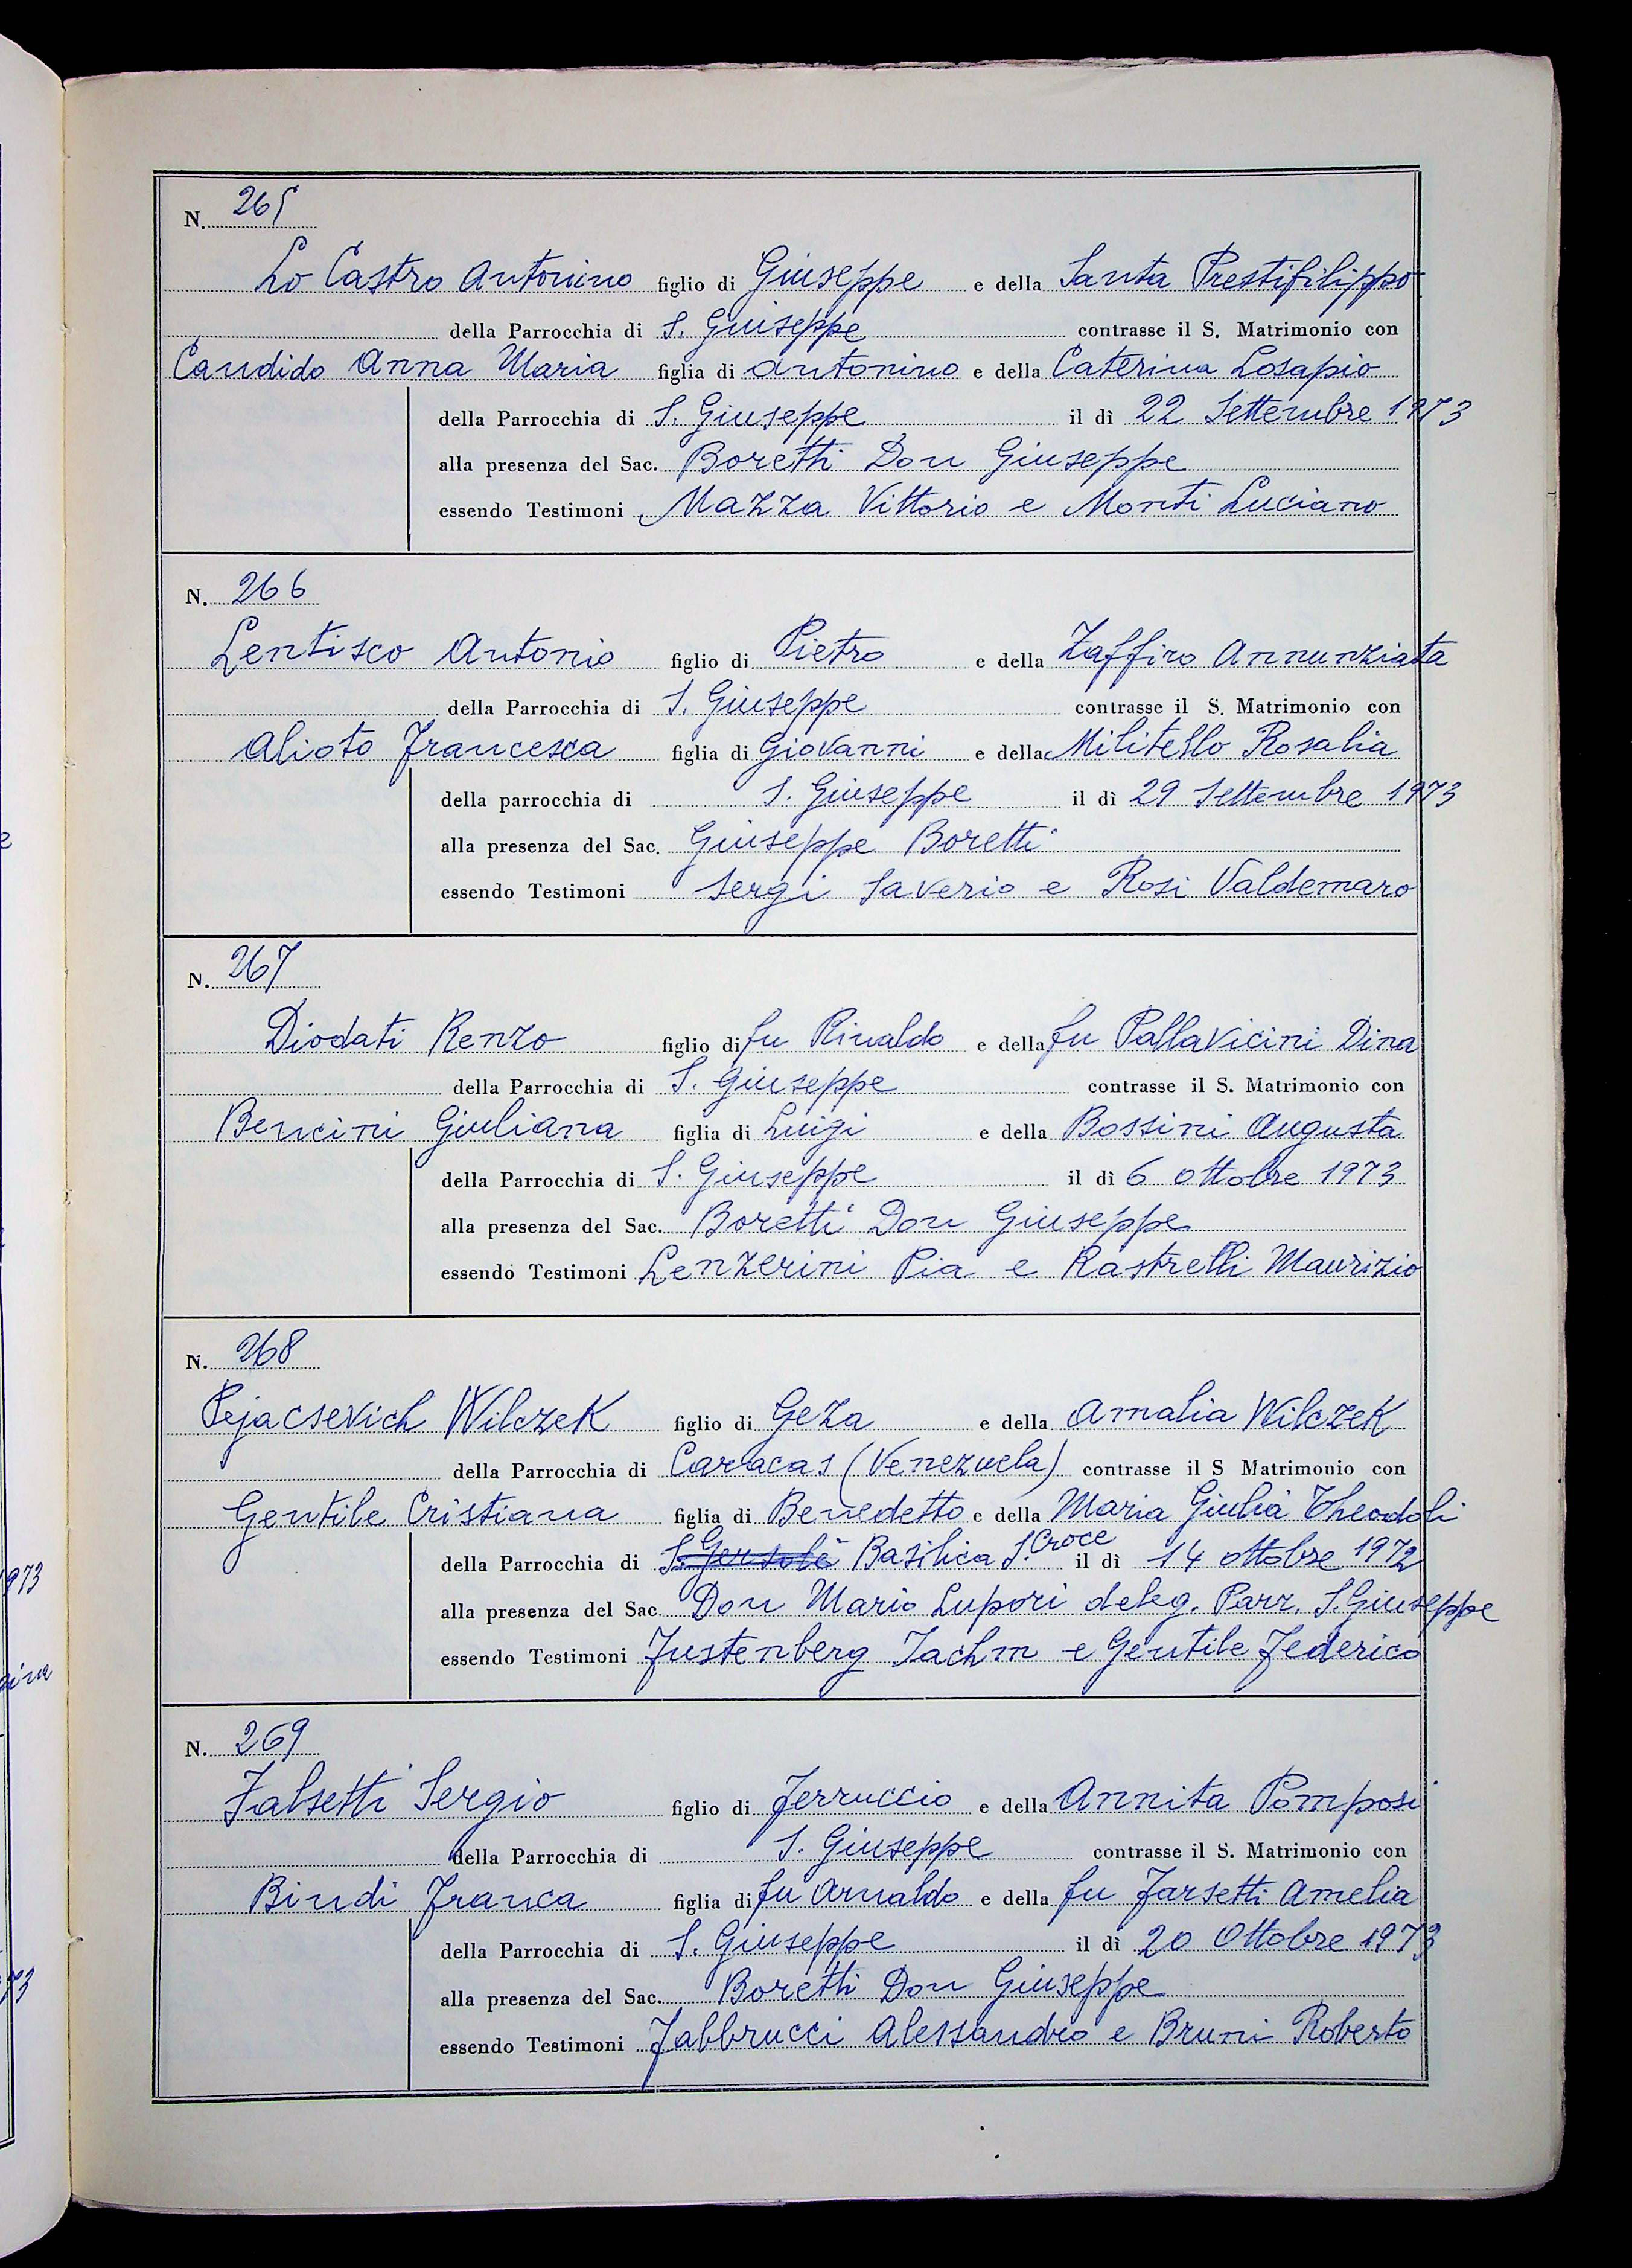 N. 265
Lo Castro Antonino figlio di Giuseppe e della Santa Prestifilippo
della Parrocchia di S. Giuseppe contrasse il S. Matrimonio con
Candido Anna Maria figlia di Antonino e della Caterina Losapio
della Parrocchia di S. Giuseppe il dì 22 Settembre 1973
alla presenza del Sac. Boretti Don Giuseppe
essendo Testimoni Mazza Vittorio e Monti Luciano
N. 266
Lentisco Antonio figlio di Pietro e della Zaffiro Annunziata
della Parrocchia di S. Giuseppe contrasse il S. Matrimonio con
Alioto Francesca figlia di Giovanni e della Militello Rosalia
della parrocchia di S. Giuseppe il dì 29 Settembre 1973
alla presenza del Sac. Giuseppe Boretti
essendo Testimoni Sergi Saverio e Rosi Valdemaro
N. 267
Diodati Renzo figlio di fu Rinaldo e della fu Pallavicini Dina
della Parrocchia di S. Giuseppe contrasse il S. Matrimonio con
Bencini Giuliana figlia di Luigi e della Bossini Augusta
della Parrocchia di S. Giuseppe il dì 6 Ottobre 1973
alla presenza del Sac. Boretti Don Giuseppe
essendo Testimoni Lenzerini Pia e Rastrelli Maurizio
N. 268
Pejacsevich Wilczek figlio di Geza e della Amalia Wilczek
della Parrocchia di Caracas (Venezuela) contrasse il S Matrimonio con
Gentile Cristiana figlia di Benedetto e della Maria Giulia Theodoli
della Parrocchia di Basilica S. Croce il dì 14 ottobre 1972
alla presenza del Sac Don Mario Lupori deleg. Parr. S. Giuseppe
essendo Testimoni Fustenberg Iachm e Gentile Federico
N. 269
Falsetti Sergio figlio di Ferruccio e della Annita Pomposi
della Parrocchia di S. Giuseppe contrasse il S. Matrimonio con
Bindi Franca figlia di fu Arnaldo e della fu Farsetti Amelia
della Parrocchia di S. Giuseppe il dì 20 Ottobre 1973
alla presenza del Sac. Boretti Don Giuseppe
essendo Testimoni Fabbrucci Alessandro e Bruni Roberto
973
73